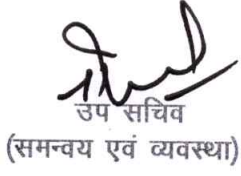 उप सचिव
(समन्वय एवं व्यवस्था)